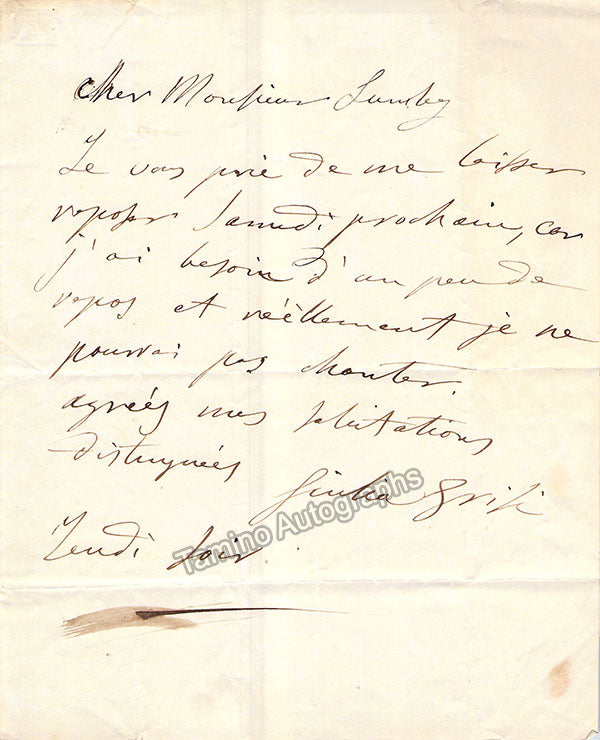 Cher Monsieur Lumley
Je vous prie de me laisser
reposer Samedi prochain, car
j'ai besoin d'un peu de
repos et réèllement je ne
pourrai pas chanter.
agréés mes salutations
distinguées
Giulia Grisi
Jeudi soir
Tamino Autographs